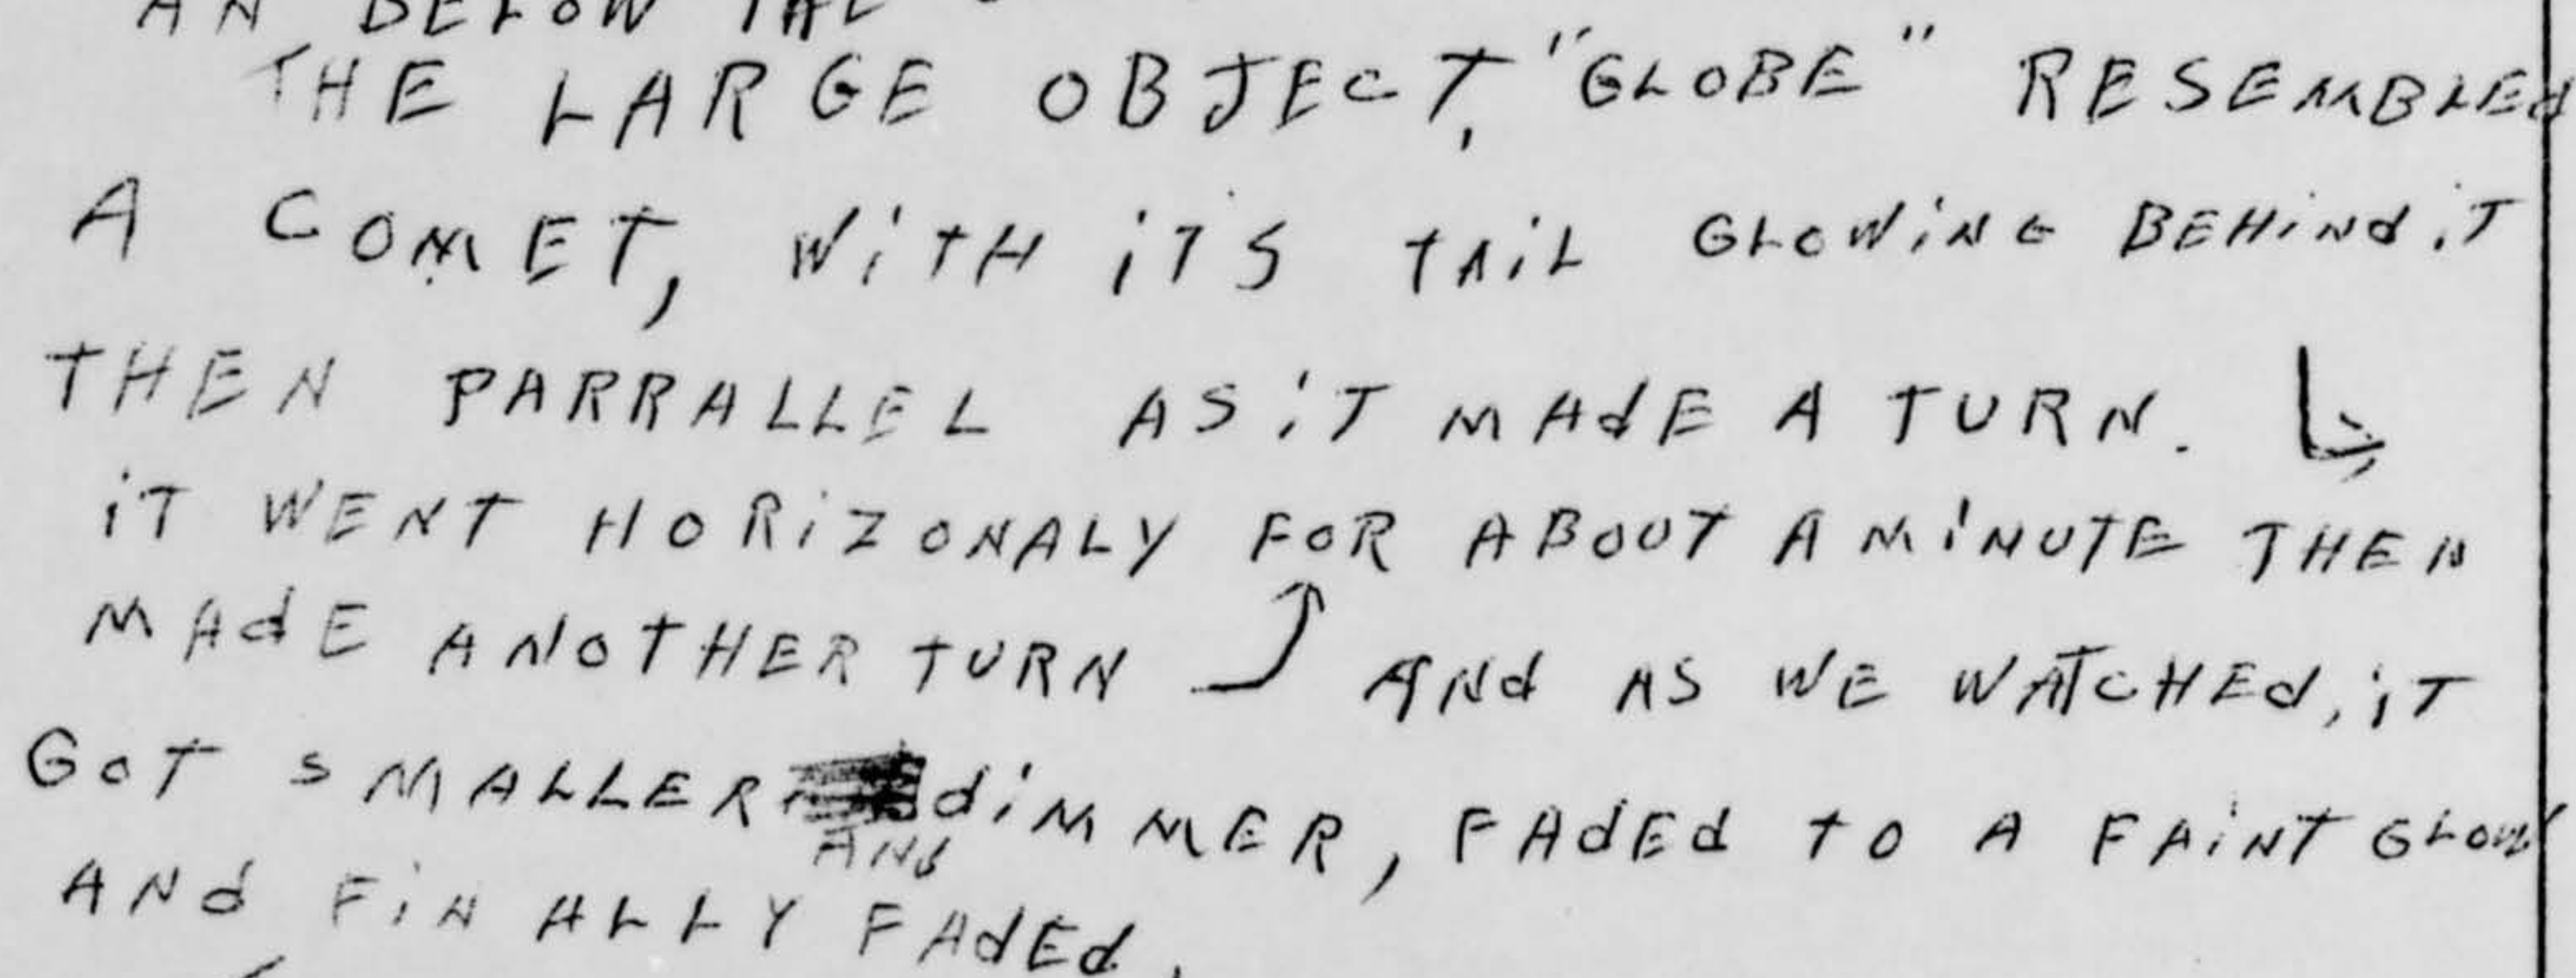 BELOW THE
THE LARGE OBJECT, "GLOBE" RESEMBLEd
A COMET, WiTH iTS TAiL GLOWiNG BEHiNd iT
THEN PARRALLEL AS iT MAdE A TURN.
iT WENT HORiZONALY FOR ABOUT A MiNUTE THEN
MAdE ANOTHER TURN ANd AS WE WATCHEd, iT
GOT SMALLER AND diMMER, FAdEd TO A FAiNT GLOW
ANd FiNALLY FAdEd.